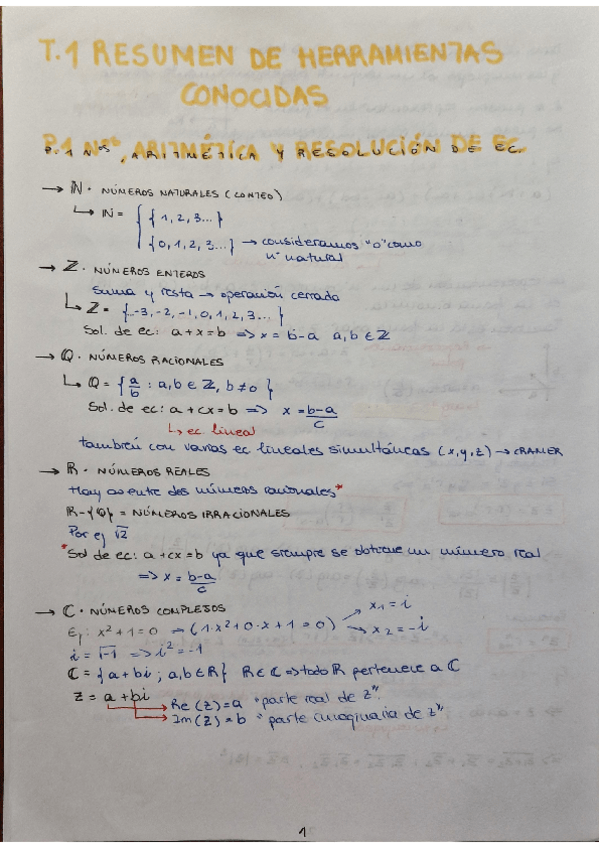 T.1 RESUMEN DE HERRAMIENTAS
CONOCIDAS
P.1 Nºs, ARITMÉTICA Y RESOLUCIÓN DE EC.
→ ℕ · NÚMEROS NATURALES (CONTEO)
↳ ℕ = { {1, 2, 3...}
{0, 1, 2, 3...} → consideramos "0" como
nº natural
→ ℤ · NÚMEROS ENTEROS
Suma y resta → operación cerrada
↳ ℤ = {..-3, -2, -1, 0, 1, 2, 3...}
Sol. de ec: a + x = b => x = b-a a, b ∈ ℤ
→ ℚ · NÚMEROS RACIONALES
↳ ℚ = { a/b : a, b ∈ ℤ, b ≠ 0 }
Sol. de ec: a + cx = b => x = b-a/c
↳ ec lineal
también con varias ec lineales simultáneas (x, y, z) → CRAMER
→ ℝ · NÚMEROS REALES
Hay ∞ entre dos números racionales*
ℝ-{ℚ} = NÚMEROS IRRACIONALES
Por ej √2
*Sol de ec: a + cx = b ya que siempre se obtiene un número real
=> x = b-a/c
→ ℂ · NÚMEROS COMPLEJOS
Ej: x² + 1 = 0 → (1·x² + 0·x + 1 = 0) → x₁ = i
→ x₂ = -i
i = √-1 => i² = -1
ℂ = {a + bi ; a, b ∈ ℝ} ℝ ∈ ℂ => todo ℝ pertenece a ℂ
z = a + bi
→ Re (z) = a "parte real de z"
→ Im (z) = b "parte imaginaria de z"
1